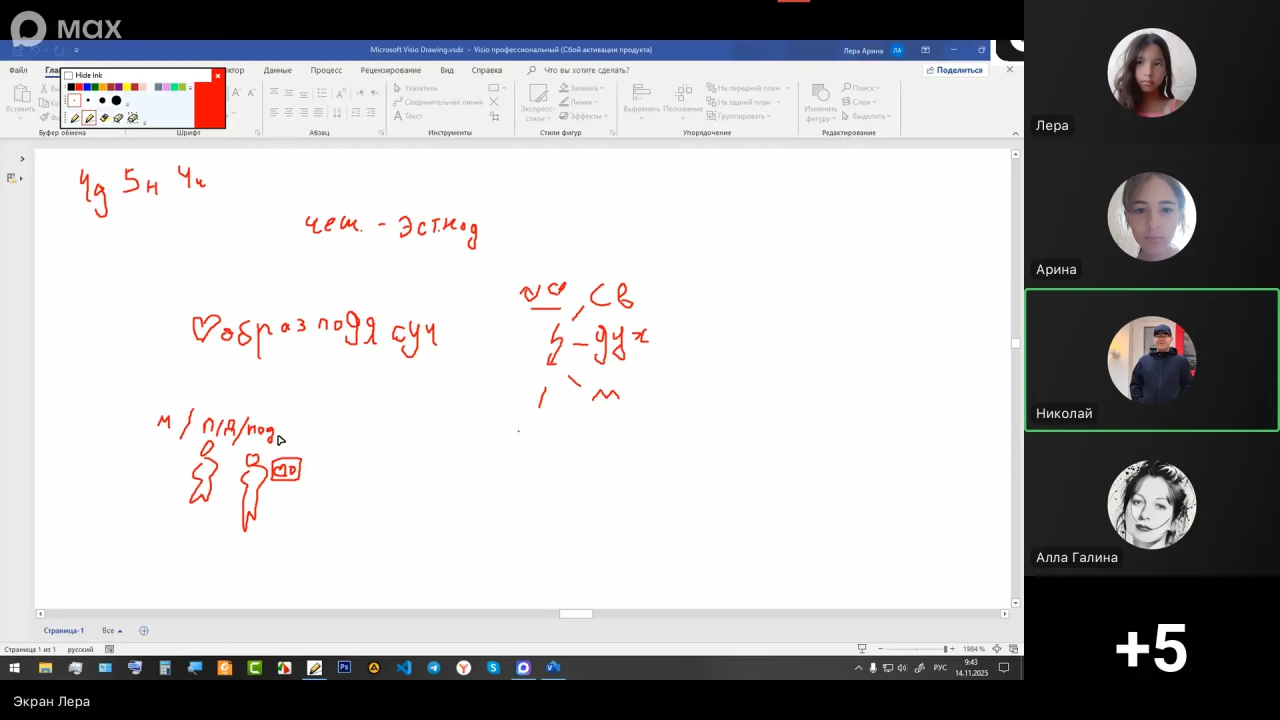 мах
Microsoft Visio Drawing.vsdx - Visio профессиональный (Сбой активации продукта)
Лера Арина ЛА
Файл Гла Hide Ink ктор Данные Процесс Рецензирование Вид Справка Что вы хотите сделать? Поделиться
Вставить
Указатель
Соединительная линия
Текст
Экспресс-стили
Заливка
Линия
Эффекты
Выровнять Положение
На передний план
На задний план
Группировать
Изменить фигуру
Поиск
Слои
Выделить
Буфер обмена Шрифт Абзац Инструменты Стили фигур Упорядочение Редактирование
4д 5н 4ч
образ подя суч
св
дух
м
м / п/д/под
Страница-1 Все
Страница 1 из 1 русский 1984 %
РУС 9:43 14.11.2025
Экран Лера
Лера
Арина
Николай
Алла Галина
+5